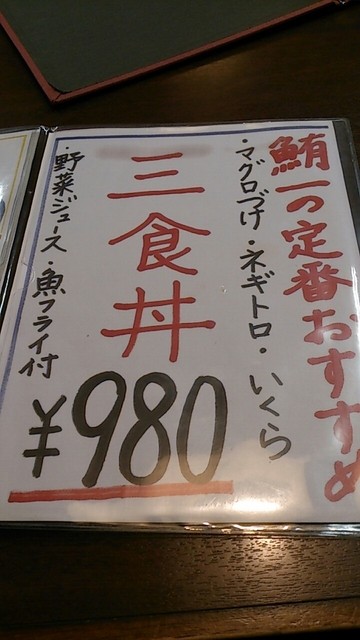 鮪一の定番おすすめ
・マグロづけ・ネギトロ・いくら
三食丼
・野菜ジュース・魚フライ付
¥980